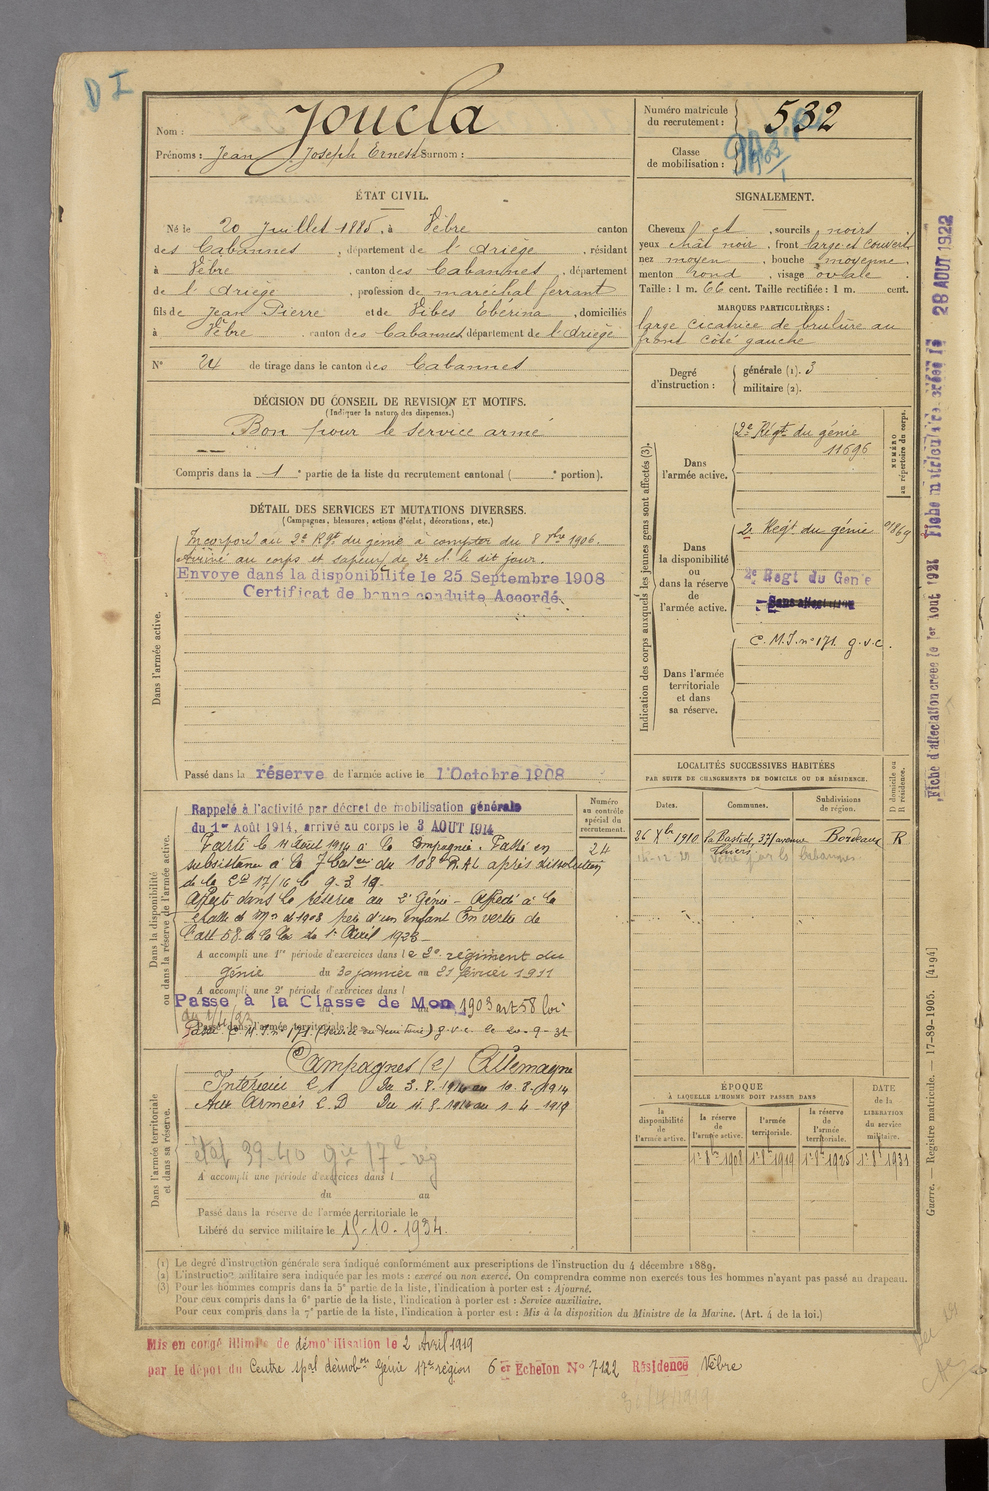 D I
Nom : Joucla
Prénoms : Jean Joseph Ernest Surnom :
Numéro matricule du recrutement : 532
Classe de mobilisation :
ÉTAT CIVIL.
Né le 20 Juillet 1885, à Vèbre canton
des Cabannes, département de l'Ariège, résidant
à Vèbre, canton des Cabannes, département
de l'Ariège, profession de maréchal ferrant
fils de Jean Pierre et de Vibes Ebérina, domiciliés
à Vèbre canton des Cabannes département de l'Ariège
N° 24 de tirage dans le canton des Cabannes
SIGNALEMENT.
Cheveux et, sourcils noirs
yeux chât noir, front large et couvert
nez moyen, bouche moyenne,
menton rond, visage ovale.
Taille : 1 m. 66 cent. Taille rectifiée : 1 m. cent.
MARQUES PARTICULIÈRES :
large cicatrice de brulure au
front côté gauche
Degré d'instruction : générale (1). 3
militaire (2).
DÉCISION DU CONSEIL DE REVISION ET MOTIFS.
(Indiquer la nature des dispenses.)
Bon pour le service armé
Compris dans la 1e partie de la liste du recrutement cantonal ( e portion).
DÉTAIL DES SERVICES ET MUTATIONS DIVERSES.
(Campagnes, blessures, actions d'éclat, décorations, etc.)
Dans l'armée active.
Incorporé au 2e Rgt du génie à compter du 8 8bre 1906.
Arrivé au corps et sapeur de 2e Cl le dit jour.
Envoyé dans la disponibilité le 25 Septembre 1908
Certificat de bonne conduite Accordé.
Passé dans la réserve de l'armée active le 1 Octobre 1908
Indication des corps auxquels les jeunes gens sont affectés (3).
NUMÉRO au répertoire du corps.
Dans l'armée active.
2e Régt du génie
11696
Dans la disponibilité ou dans la réserve de l'armée active.
2e Regt du génie
2e Regt du Génie
Sans affectation
Dans l'armée territoriale et dans sa réserve.
C.M.I. n° 171 g.v.c.
LOCALITÉS SUCCESSIVES HABITÉES
PAR SUITE DE CHANGEMENTS DE DOMICILE OU DE RÉSIDENCE.
D domicile ou R résidence.
Dates. Communes. Subdivisions de région.
26 Xbre 1910 La Bastide, 37 avenue Thiers Bordeaux R
Vèbre par les Cabannes
Dans la disponibilité ou dans la réserve de l'armée active.
Numéro au contrôle spécial du recrutement.
24
Rappelé à l'activité par décret de mobilisation générale
du 1er Août 1914, arrivé au corps le 3 AOUT 1914
Parti le 11 Août 1914 à la Compagnie. Passé en
subsistance à la 7 batie du 108e R.A.L après dissolution
de la Cie 17/16 le 9-3-19.
Affecté dans la réserve au 2e Génie - Affecté à la
classe de Mon de 1903 père d'un enfant En vertu de
l'art 58 de la loi du 1er Avril 1923
A accompli une 1re période d'exercices dans le 2e régiment du
génie du 30 janvier au 21 février 1911
A accompli une 2e période d'exercices dans l
Passé à la Classe de Mon 1903 art 58 loi
du 1/4/23
Passé dans l'armée territoriale le
Passé C.M.I. n° 171 g.v.c. le 20-9-31
Dans l'armée territoriale et dans sa réserve.
Campagnes (e) Allemagne
Intérieur C S Du 3.8.1914 au 10.8.1914
Aux Armées C D Du 11.8.1914 au 1-4-1919
39-40
A accompli une période d'exercices dans l
du au
Passé dans la réserve de l'armée territoriale le
Libéré du service militaire le 15-10-1934.
ÉPOQUE
À LAQUELLE L'HOMME DOIT PASSER DANS
la disponibilité de l'armée active.
la réserve de l'armée active.
l'armée territoriale.
la réserve de l'armée territoriale.
DATE de la LIBÉRATION du service militaire.
1er 8bre 1908 1er 8bre 1919 1er 8bre 1925 1er 8bre 1931
(1) Le degré d'instruction générale sera indiqué conformément aux prescriptions de l'instruction du 4 décembre 1889.
(2) L'instruction militaire sera indiquée par les mots : exercé ou non exercé. On comprendra comme non exercés tous les hommes n'ayant pas passé au drapeau.
(3) Pour les hommes compris dans la 5e partie de la liste, l'indication à porter est : Ajourné.
Pour ceux compris dans la 6e partie de la liste, l'indication à porter est : Service auxiliaire.
Pour ceux compris dans la 7e partie de la liste, l'indication à porter est : Mis à la disposition du Ministre de la Marine. (Art. 4 de la loi.)
Mis en congé illimité de démobilisation le 2 Avril 1919
par le dépôt du Centre spal démobon Génie 17e région 6er Echelon N° 7122 Résidence Vèbre
Guerre. — Registre matricule. — 17-89-1905. [4194]
Fiche d'affectation créée le 1er Août 1921 Fiche matriculaire créée le 28 AOUT 1922